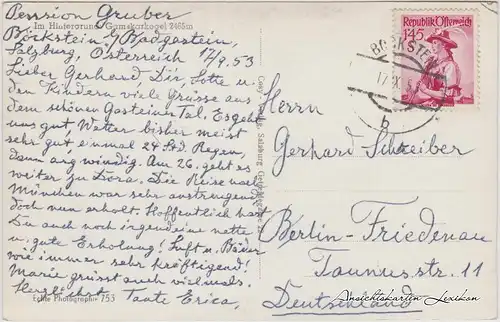 Pension Gruber
Im Hintergrund Gamskarkogel 2465m
Böckstein b/Badgastein,
Salzburg, Österreich 17/9.53
Lieber Gerhard, Dir, Lotte u.
den Kindern viele Grüsse aus
dem schönen Gasteiner Tal. Es geht
uns gut, Wetter bisher meist
sehr gut einmal 24 Std. Regen,
dann arg windig. Am 26. geht es
weiter zu Dora. Die Reise nach
München war sehr anstrengend
doch nun erholt. Hoffentlich hat
Du auch noch irgendeine nette
u. gute Erholung! Luft u. Bäder
wie immer sehr kräftigend!
Marie grüsst auch vielmals.
Herzlichst Tante Erica.
Echte Photographie 753
Salzburg
Republik Österreich
1.45
BÖCKSTEIN
b
Herrn
Gerhard Schreiber
Berlin-Friedenau
Taunusstr. 11
Deutschland
Ansichtskarten Lexikon